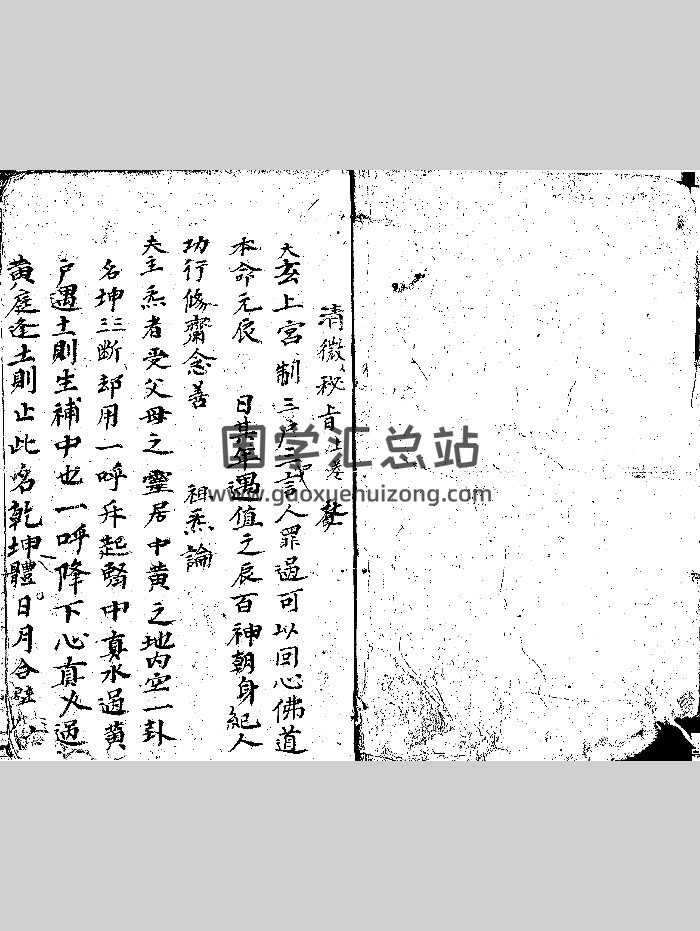 清微秘旨上卷
太玄上宮制三尸之言人罪過可以回心佛道
本命元辰 日其年遇值之辰百神朝身紀人
功行修齋念善 祖炁論
夫主炁者受父母之靈居中黃之地内空一卦
名坤三断却用一呼升起腎中真水過黄
户遇土則生補中也一呼降下心真火過
黄庭逢土則止此名乾坤體日月合璧
国学汇总站
www.gaoxuehuizong.com